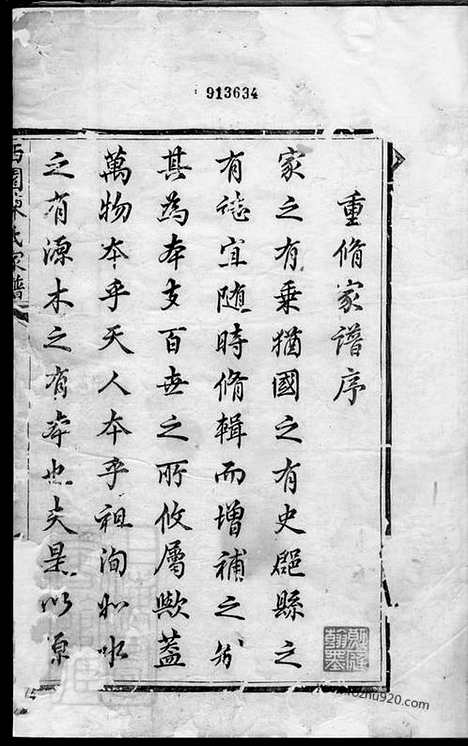 913634
重脩家譜序
家之有乗猶國之有史郡縣之
有誌宜随時脩輯而增補之矧
其為本支百世之所攸屬歟蓋
萬物本乎天人本乎祖洵如水
之有源木之有本也夫是以源
陳氏家譜